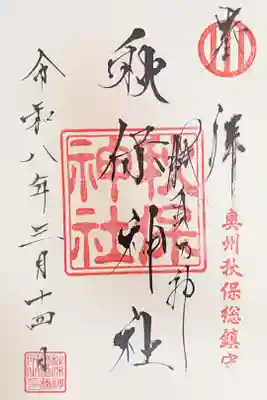 奉拝
奥州秋保総鎮守
秋保神社
勝負の神
秋保神社
令和八年三月十四日